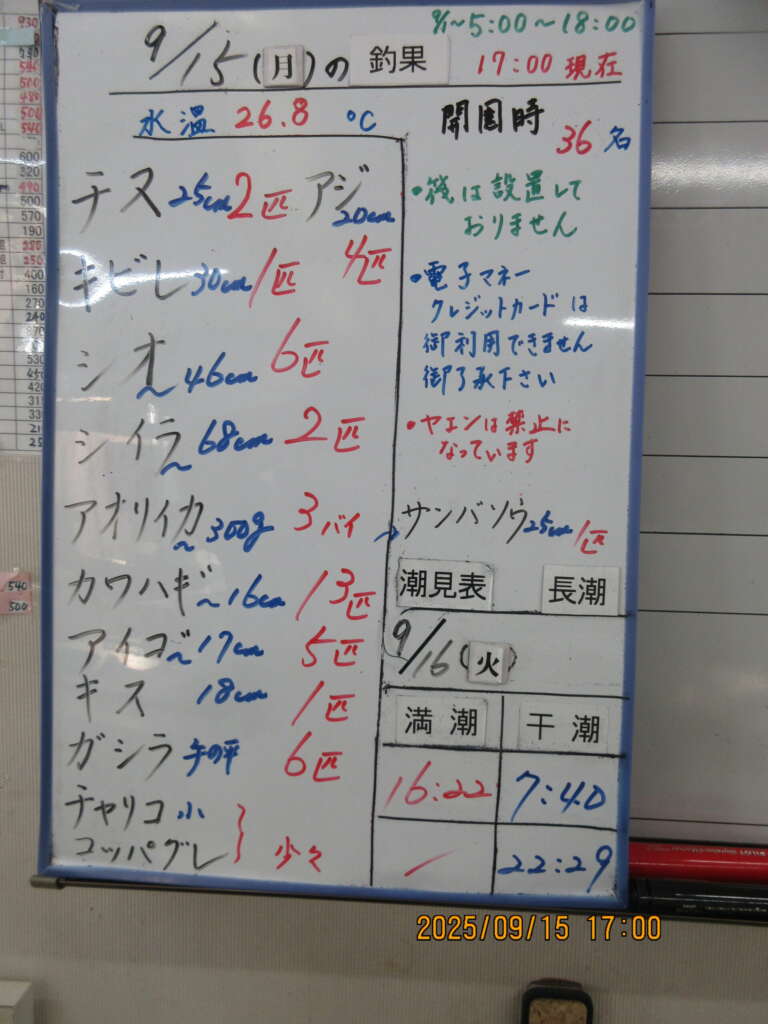 9/1~5:00~18:00
9/15(月)の 釣果
17:00 現在
水温 26.8 ℃
開園時 36名
チヌ 25cm 2匹
アジ 20cm 4匹
キビレ 30cm 1匹
シオ ~46cm 6匹
シイラ ~68cm 2匹
アオリイカ ~300g 3バイ
カワハギ ~16cm 13匹
アイゴ ~17cm 5匹
キス 18cm 1匹
ガシラ 手の平 6匹
チャリコ 小
コッパグレ } 少々
・筏は設置して
おりません
・電子マネー
クレジットカードは
御利用できません
御了承下さい
・ヤエンは禁止に
なっています
→サンバソウ 25cm 1匹
潮見表 長潮
9/16(火)
満潮 干潮
16:22 7:40
/ 22:29
2025/09/15 17:00